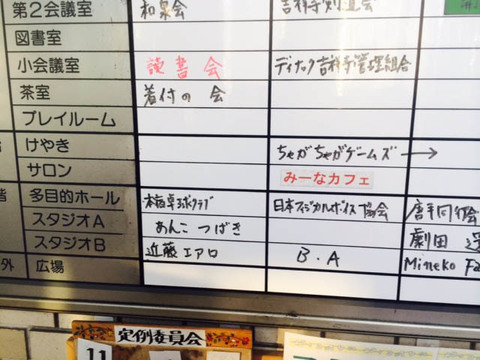 第2会議室 和泉会
図書室
小会議室 読書会 ディナック吉祥寺管理組合
茶室 着付の会
プレイルーム
けやき ちゃがちゃがゲームズ →
サロン みーなカフェ
多目的ホール 日本マジカルボイス協会
スタジオA あんこ つばき 劇団
スタジオB 近藤エアロ B.A Mineko
外 広場
定例委員会
11